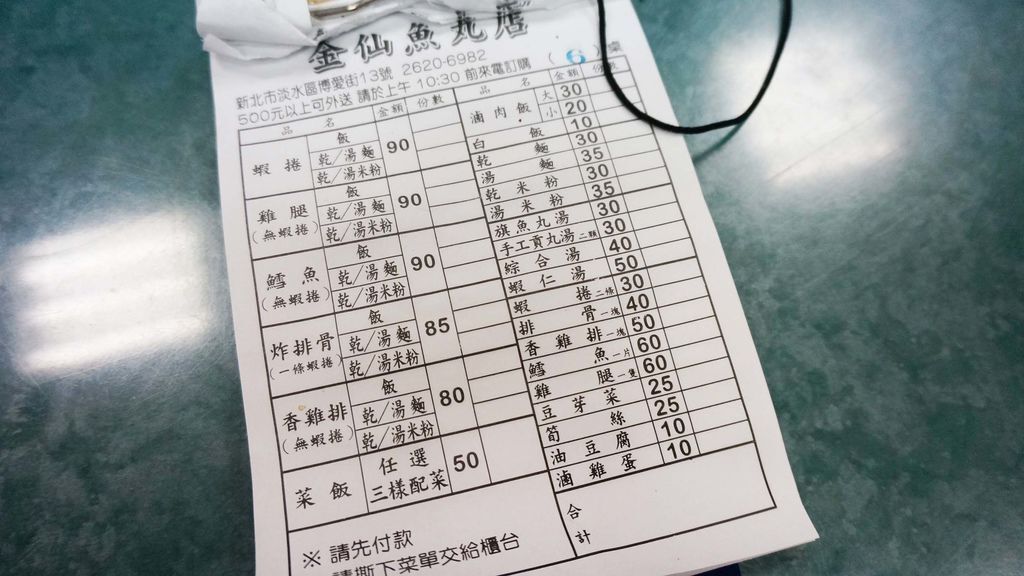 金仙魚丸店
新北市淡水區博愛街13號 2620-6982
500元以上可外送 請於上午10:30前來電訂購
( 6 ) 桌
品名 金額 份數
蝦捲 飯 90
乾/湯麵
乾/湯米粉
雞腿 (無蝦捲) 飯 90
乾/湯麵
乾/湯米粉
鱈魚 (無蝦捲) 飯 90
乾/湯麵
乾/湯米粉
炸排骨 (一條蝦捲) 飯 85
乾/湯麵
乾/湯米粉
香雞排 (無蝦捲) 飯 80
乾/湯麵
乾/湯米粉
菜飯 任選 三樣配菜 50
※ 請先付款
請撕下菜單交給櫃台
品名 金額 份數
滷肉飯 大 30
小 20
白飯 10
乾麵 30
湯麵 35
乾米粉 30
湯米粉 35
旗魚丸湯 30
手工貢丸湯二顆 30
綜合湯 40
蝦仁湯 50
蝦捲二條 30
排骨一塊 40
香雞排一塊 50
鱈魚一片 60
雞腿一隻 60
豆芽菜 25
筍絲 25
油豆腐 10
滷雞蛋 10
合計